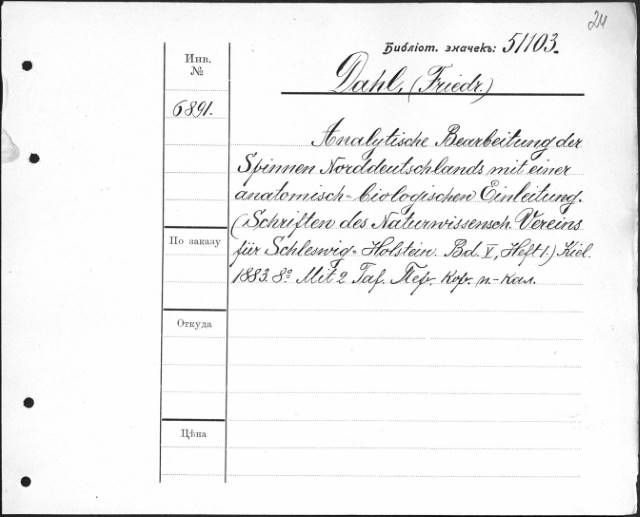 24
Библіот. значекъ: 51103.
Инв.
№
Dahl, (Friedr.)
6891.
Analytische Bearbeitung der
Spinnen Norddeutschlands mit einer
anatomisch-biologischen Einleitung.
(Schriften des Naturwissensch. Vereins
По заказу
für Schleswig-Holstein. Bd. V, Heft 1.) Kiel.
1883. 8º. Mit 2 Taf. Пер. кор. п.-кал.
Откуда
Цѣна